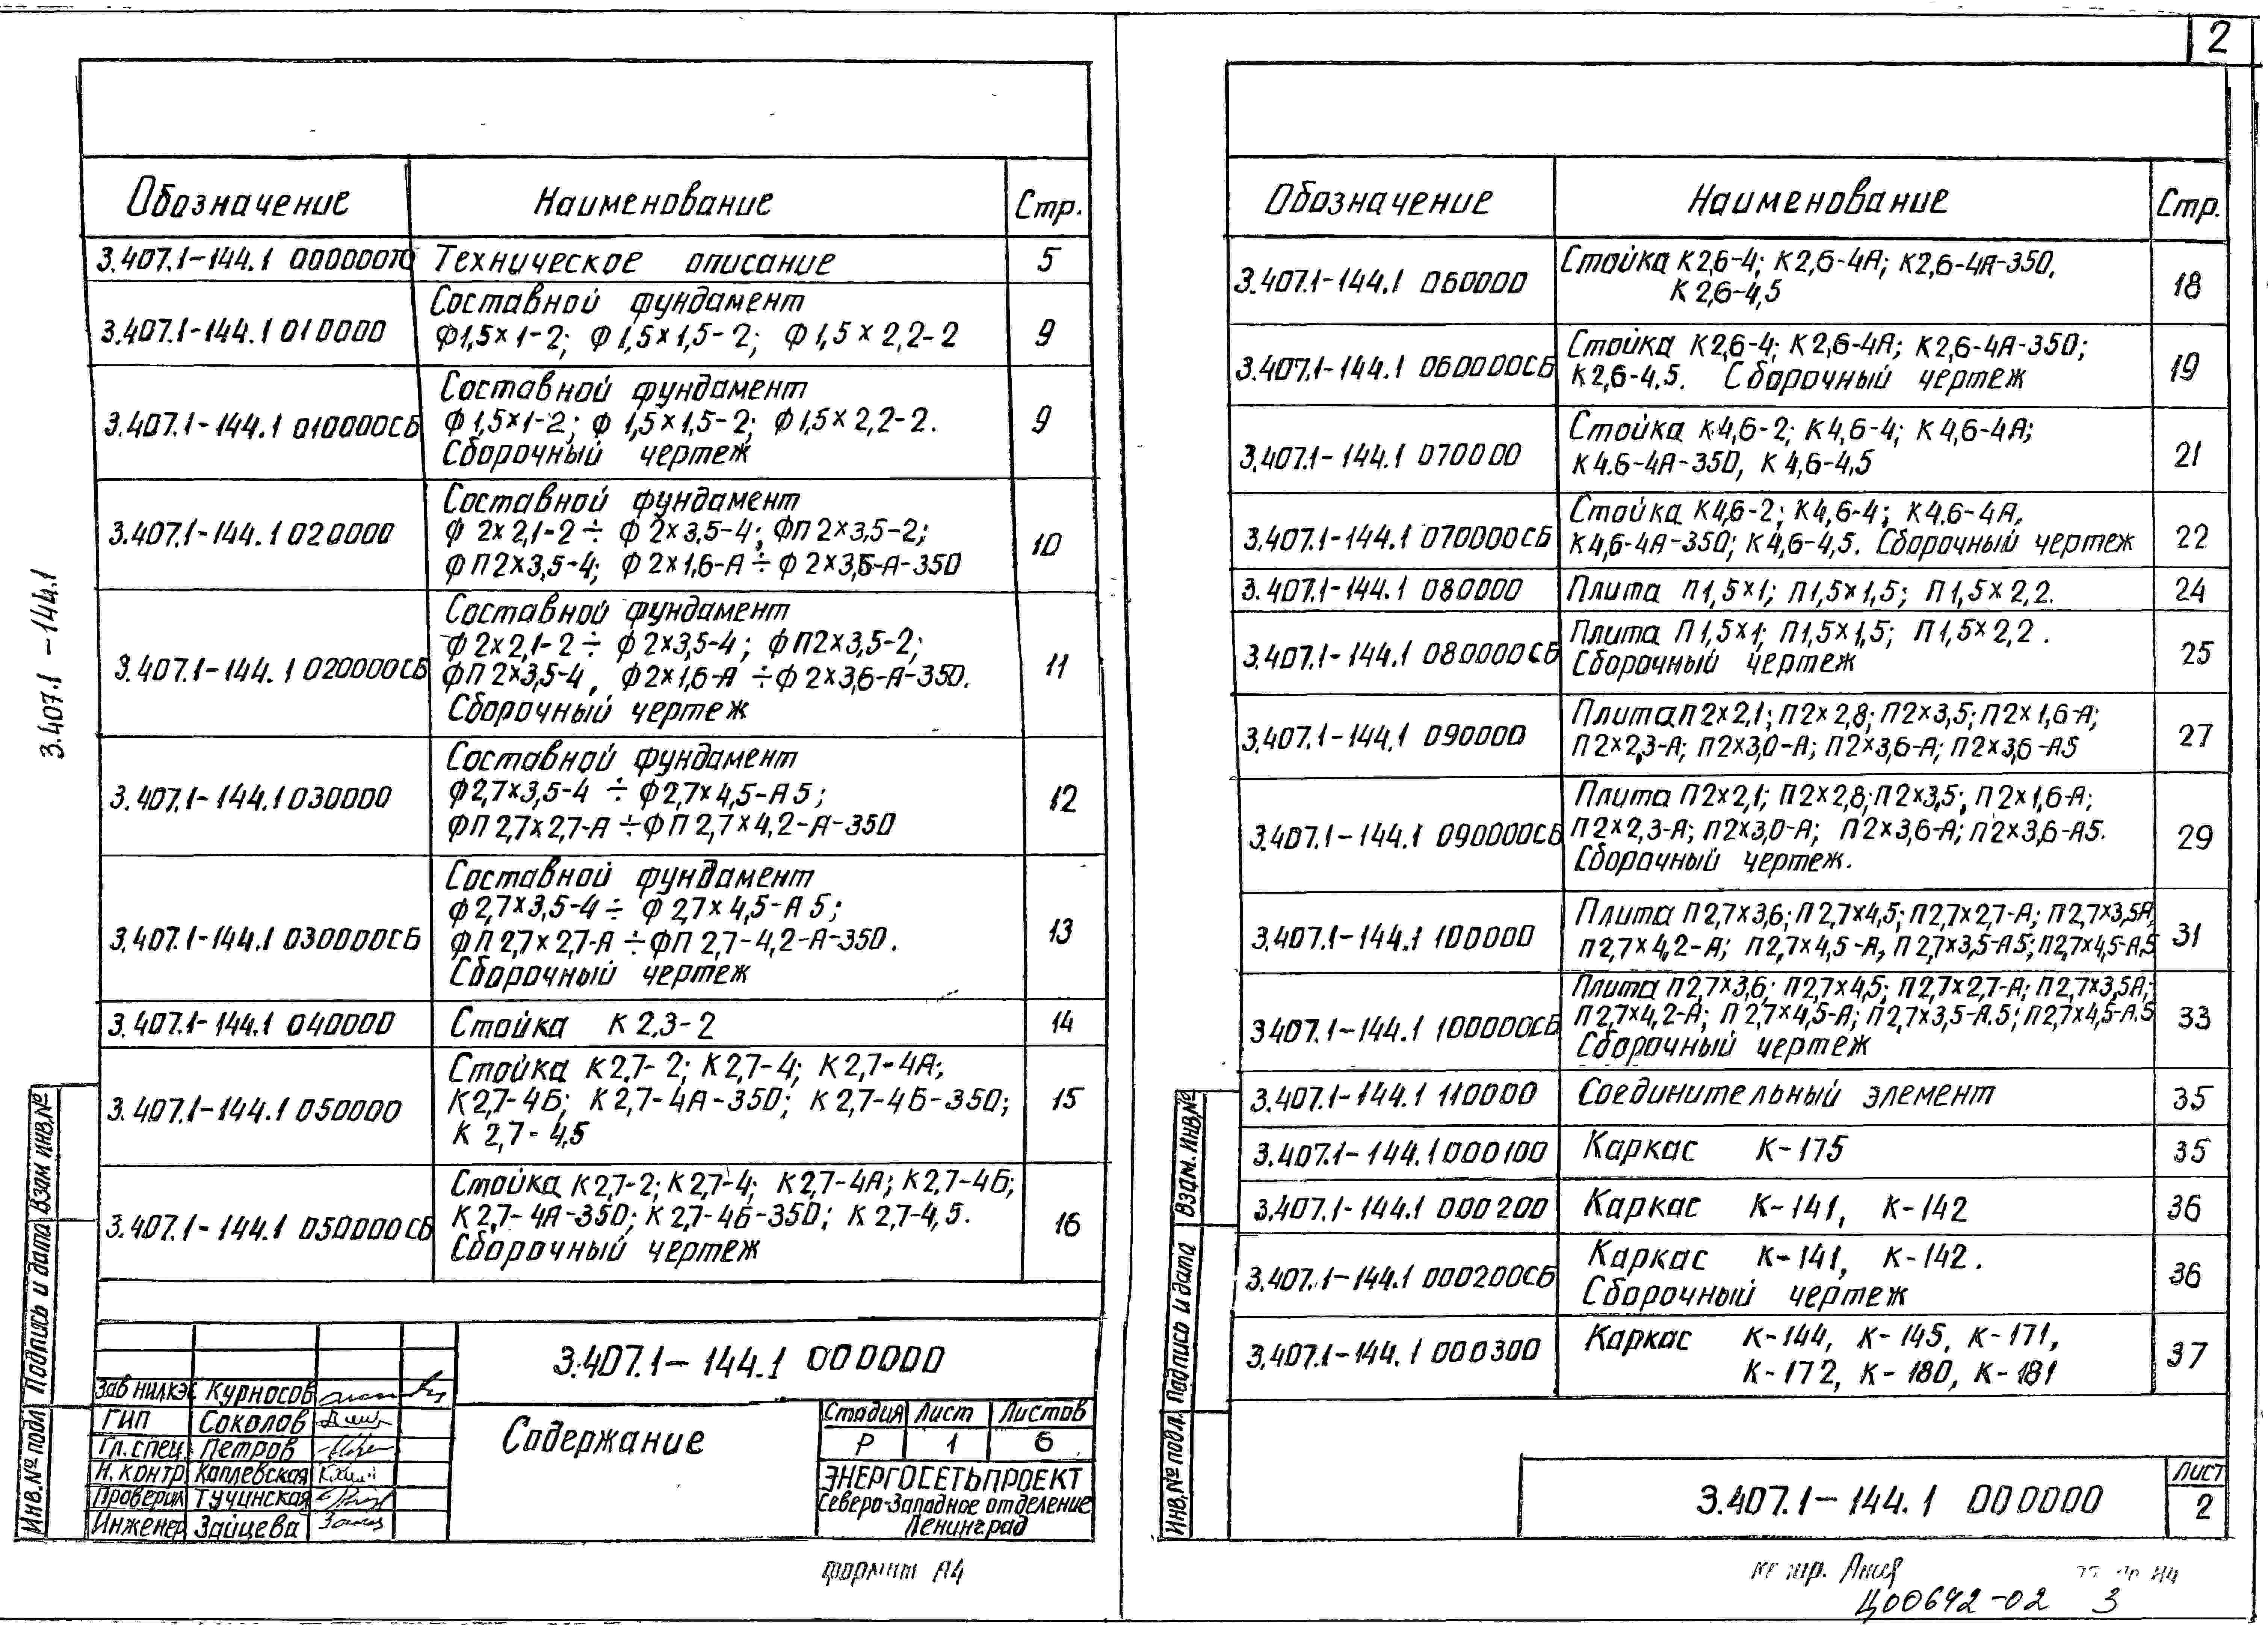 2
3.407.1-144.1
Обозначение Наименование Стр.
3.407.1-144.1 000000ТО Техническое описание 5
3.407.1-144.1 010000 Составной фундамент
Ф1,5×1-2; Ф1,5×1,5-2; Ф1,5×2,2-2 9
3.407.1-144.1 010000СБ Составной фундамент
Ф1,5×1-2; Ф1,5×1,5-2; Ф1,5×2,2-2.
Сборочный чертеж 9
3.407.1-144.1 020000 Составной фундамент
Ф2×2,1-2 ÷ Ф2×3,5-4; ФП2×3,5-2;
ФП2×3,5-4; Ф2×1,6-А ÷ Ф2×3,6-А-350 10
3.407.1-144.1 020000СБ Составной фундамент
Ф2×2,1-2 ÷ Ф2×3,5-4; ФП2×3,5-2;
ФП2×3,5-4, Ф2×1,6-А ÷ Ф2×3,6-А-350.
Сборочный чертеж 11
3.407.1-144.1 030000 Составной фундамент
Ф2,7×3,5-4 ÷ Ф2,7×4,5-А5;
ФП2,7×2,7-А ÷ ФП2,7×4,2-А-350 12
3.407.1-144.1 030000СБ Составной фундамент
Ф2,7×3,5-4 ÷ Ф2,7×4,5-А5;
ФП2,7×2,7-А ÷ ФП2,7-4,2-А-350.
Сборочный чертеж 13
3.407.1-144.1 040000 Стойка К2.3-2 14
3.407.1-144.1 050000 Стойка К2,7-2; К2,7-4; К2,7-4А;
К2,7-4Б; К2,7-4А-350; К2,7-4Б-350;
К2,7-4,5 15
3.407.1-144.1 050000СБ Стойка К2,7-2; К2,7-4; К2,7-4А; К2,7-4Б;
К2,7-4А-350; К2,7-4Б-350; К2,7-4,5.
Сборочный чертеж 16
3.407.1-144.1 000000
Зав НИЛКЭС Курносов
ГИП Соколов
Гл. спец. Петров
Н. контр Каплевская
Проверил Тучинская
Инженер Зайцева
Содержание
Стадия Лист Листов
Р 1 6
ЭНЕРГОСЕТЬПРОЕКТ
Северо-Западное отделение
Ленинград
Инв.№ подл Подпись и дата Взам инв.№
формат А4
Обозначение Наименование Стр.
3.407.1-144.1 060000 Стойка К2,6-4; К2,6-4А; К2,6-4А-350,
К2,6-4,5 18
3.407.1-144.1 060000СБ Стойка К2,6-4; К2,6-4А; К2,6-4А-350;
К2,6-4,5. Сборочный чертеж 19
3.407.1-144.1 070000 Стойка К4,6-2; К4,6-4; К4,6-4А;
К4.6-4А-350, К4,6-4,5 21
3.407.1-144.1 070000СБ Стойка К4,6-2; К4,6-4; К4.6-4А,
К4,6-4А-350; К4,6-4,5. Сборочный чертеж 22
3.407.1-144.1 080000 Плита П1,5×1; П1,5×1,5; П1,5×2,2. 24
3.407.1-144.1 080000СБ Плита П1,5×1; П1,5×1,5; П1,5×2,2.
Сборочный чертеж 25
3.407.1-144.1 090000 Плита П2×2,1; П2×2,8; П2×3,5; П2×1,6-А;
П2×2,3-А; П2×3,0-А; П2×3,6-А; П2×3,6-А5 27
3.407.1-144.1 090000СБ Плита П2×2,1; П2×2,8; П2×3,5; П2×1,6-А;
П2×2,3-А; П2×3,0-А; П2×3,6-А; П2×3,6-А5.
Сборочный чертеж. 29
3.407.1-144.1 100000 Плита П2,7×3,6; П2,7×4,5; П2,7×2,7-А; П2,7×3,5А,
П2,7×4,2-А; П2,7×4,5-А, П2,7×3,5-А5; П2,7×4,5-А5 31
3.407.1-144.1 100000СБ Плита П2,7×3,6; П2,7×4,5; П2,7×2,7-А; П2,7×3,5А;
П2,7×4,2-А; П2,7×4,5-А; П2,7×3,5-А.5; П2,7×4,5-А.5
Сборочный чертеж 33
3.407.1-144.1 110000 Соединительный элемент 35
3.407.1-144.1 000100 Каркас К-175 35
3.407.1-144.1 000200 Каркас К-141, К-142 36
3.407.1-144.1 000200СБ Каркас К-141, К-142.
Сборочный чертеж 36
3.407.1-144.1 000300 Каркас К-144, К-145, К-171,
К-172, К-180, К-181 37
Инв.№ подл. Подпись и дата Взам. инв.№
3.407.1-144.1 000000
Лист
2
Ц00642-02 3